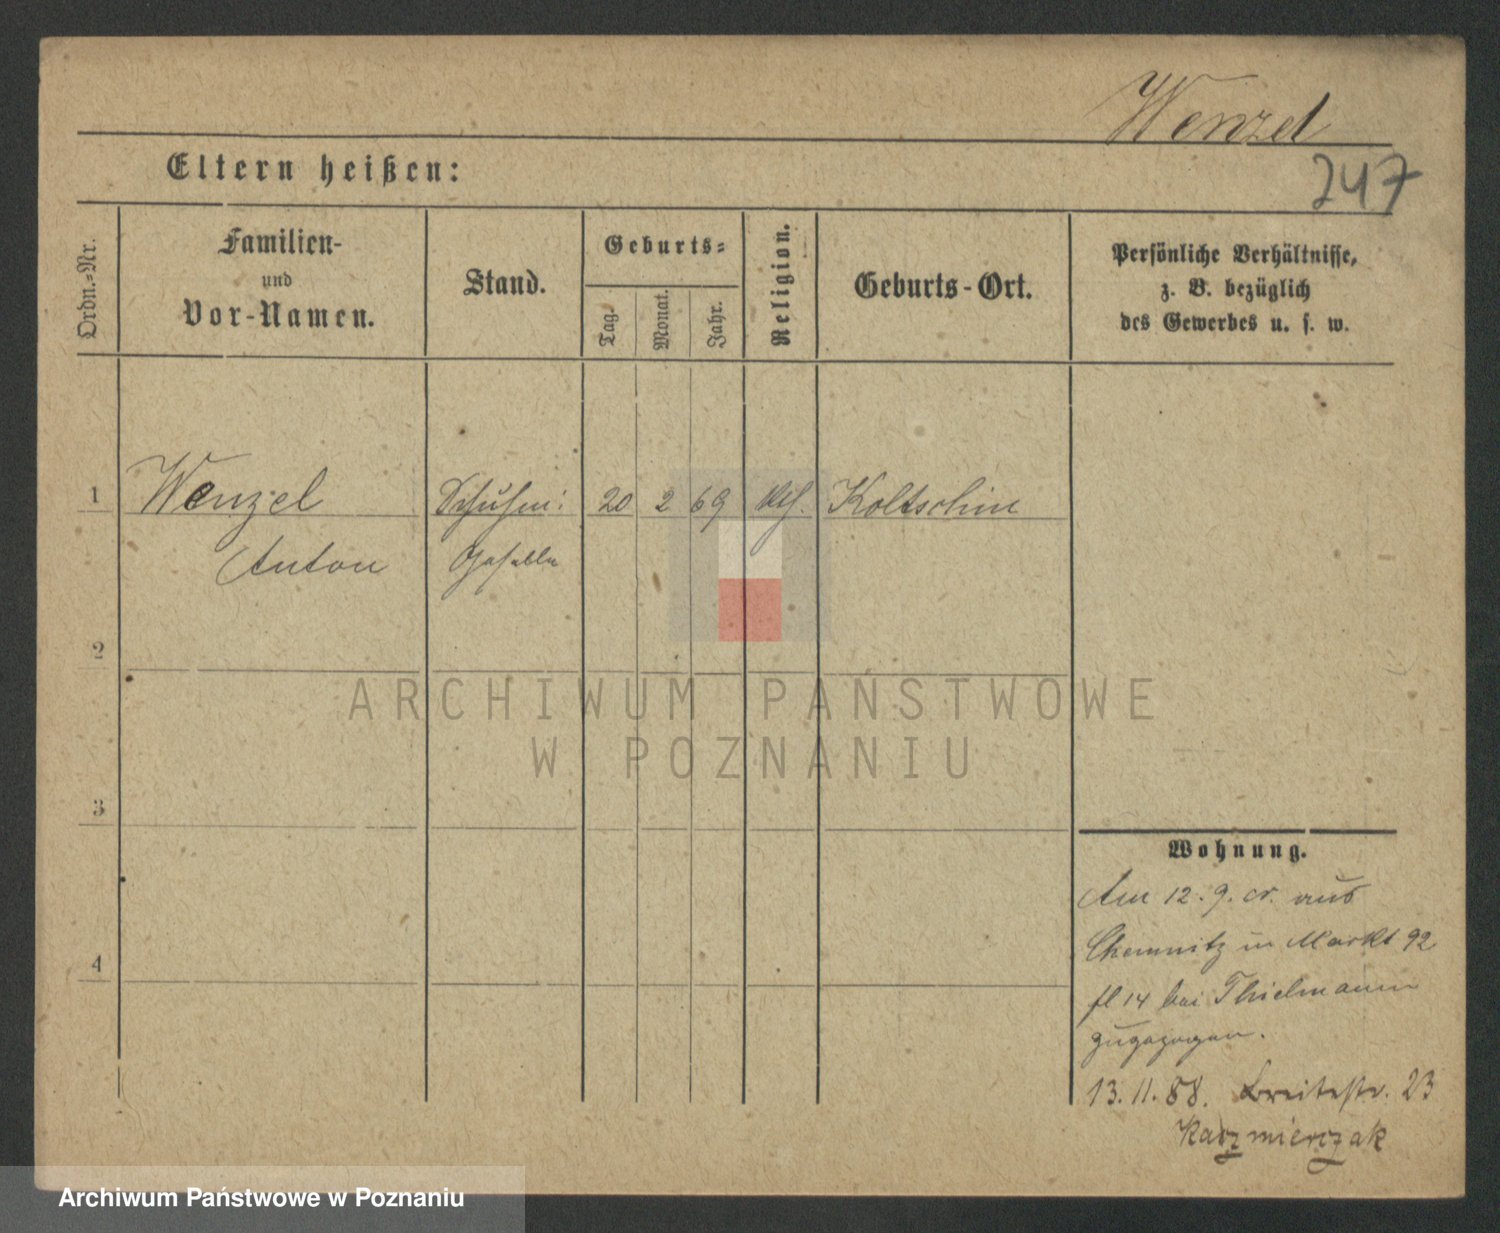 Wenzel
247
Eltern heißen:
Ordn.-Nr.
Familien-
und
Vor-Namen.
Stand.
Geburts-
Tag.
Monat.
Jahr.
Religion.
Geburts-Ort.
Persönliche Verhältnisse,
z. B. bezüglich
des Gewerbes u. s. w.
1
Wenzel
Anton
Schuhm:
Geselle
20
2
69
kth.
Koltschin
2
3
4
ARCHIWUM PAŃSTWOWE
W POZNANIU
Wohnung.
Am 12. 9. cr. aus
Chemnitz in Markt 92
fl 14 bei Thielmann
zugezogen.
13. 11. 88. Breitestr. 23
Kaczmierczak
Archiwum Państwowe w Poznaniu